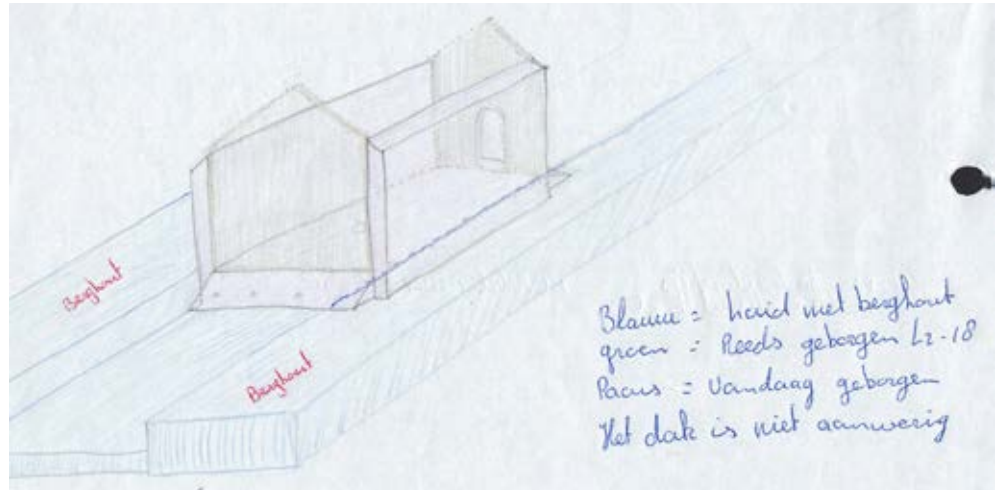 Berghout
Berghout
Blauw = huid met berghout
groen = Reeds geborgen L2-18
Paars = Vandaag geborgen
Het dak is niet aanwezig